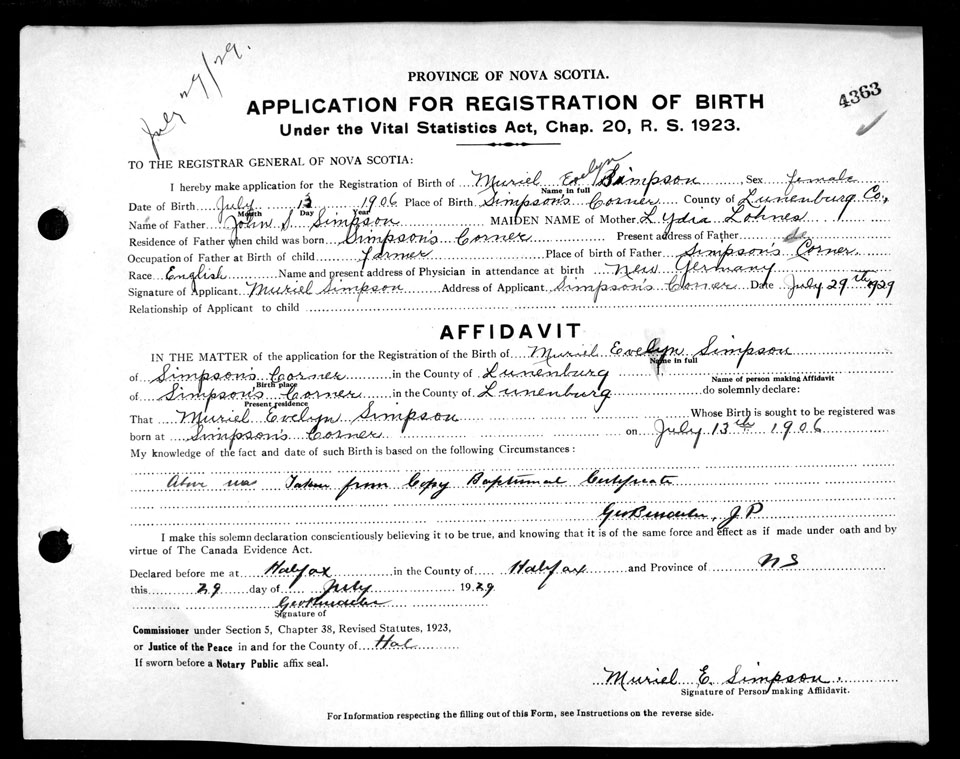 July 29/29.
PROVINCE OF NOVA SCOTIA.
4363
APPLICATION FOR REGISTRATION OF BIRTH
Under the Vital Statistics Act, Chap. 20, R. S. 1923.
TO THE REGISTRAR GENERAL OF NOVA SCOTIA:
I hereby make application for the Registration of Birth of Muriel Evelyn Simpson Sex female
Name in full
Date of Birth July 13 1906 Place of Birth Simpson's Corner County of Lunenburg Co,
Month Day Year
Name of Father John S Simpson MAIDEN NAME of Mother Lydia Lohnes
Residence of Father when child was born Simpson's Corner Present address of Father
Occupation of Father at Birth of child farmer Place of birth of Father Simpson's Corner
Race English Name and present address of Physician in attendance at birth New Germany
Signature of Applicant Muriel Simpson Address of Applicant Simpson's Corner Date July 29th 1929
Relationship of Applicant to child
AFFIDAVIT
IN THE MATTER of the application for the Registration of the Birth of Muriel Evelyn Simpson
Name in full
of Simpson's Corner in the County of Lunenburg
Birth place Name of person making Affidavit
of Simpson's Corner in the County of Lunenburg do solemnly declare:
Present residence
That Muriel Evelyn Simpson Whose Birth is sought to be registered was
born at Simpson's Corner on July 13th 1906
My knowledge of the fact and date of such Birth is based on the following Circumstances:
Above was Taken from Copy Baptismal Certificate
J P
I make this solemn declaration conscientiously believing it to be true, and knowing that it is of the same force and effect as if made under oath and by
virtue of The Canada Evidence Act.
Declared before me at Halifax in the County of Halifax and Province of NS
this 29 day of July 1929
Signature of
Commissioner under Section 5, Chapter 38, Revised Statutes, 1923,
or Justice of the Peace in and for the County of Hal
If sworn before a Notary Public affix seal.
Muriel E. Simpson.
Signature of Person making Affidavit.
For Information respecting the filling out of this Form, see Instructions on the reverse side.